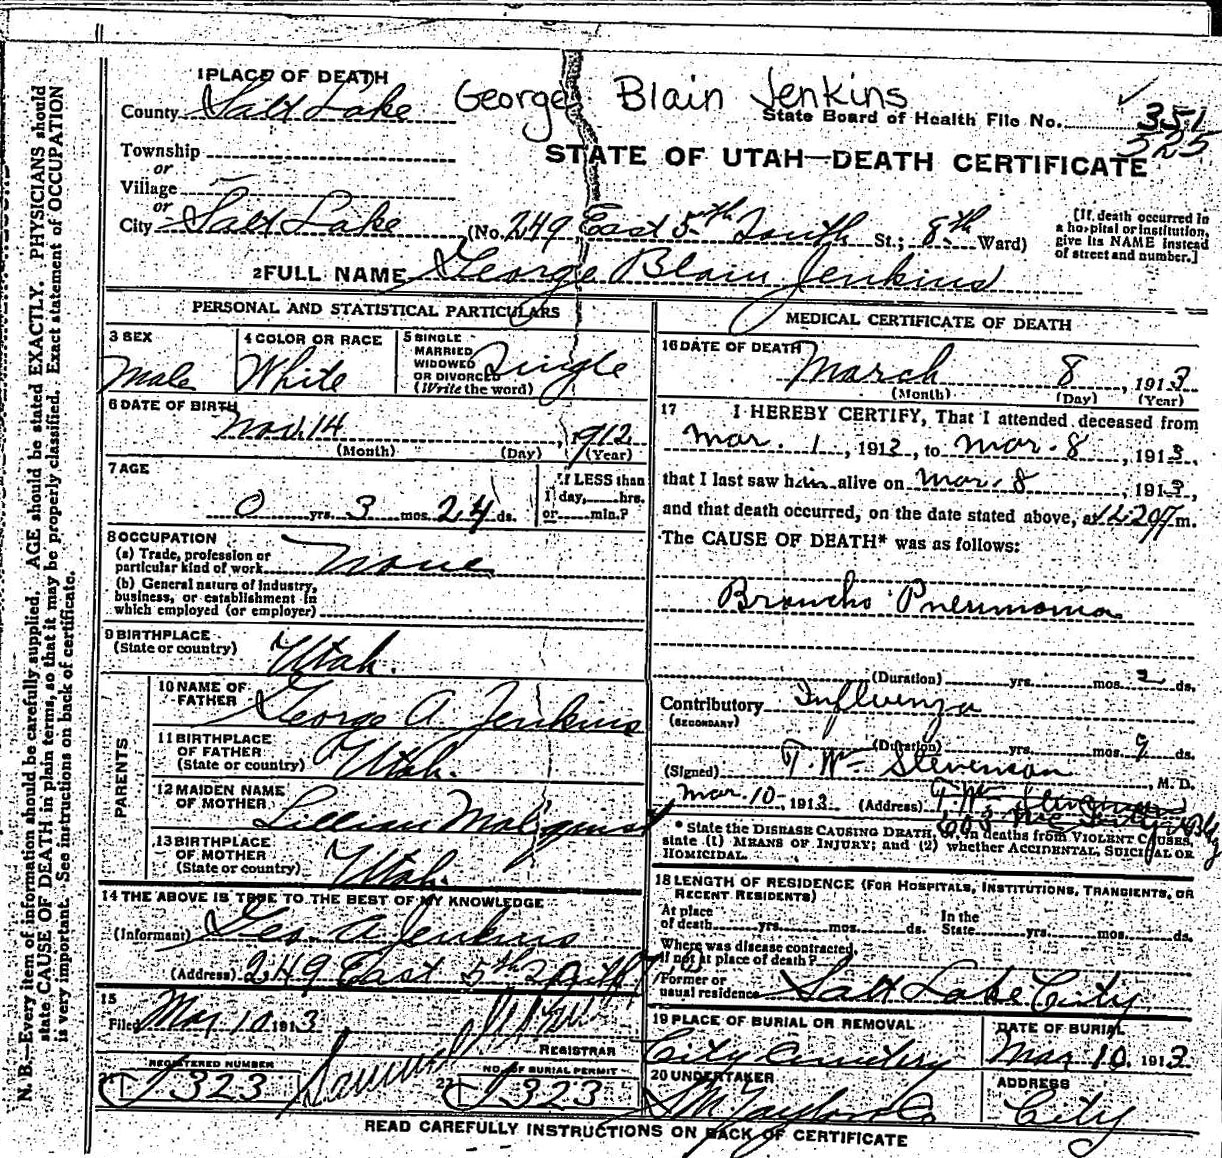 1 PLACE OF DEATH
County Salt Lake
George Blain Jenkins
State Board of Health File No. 351
525
Township
or
Village
or
City Salt Lake
STATE OF UTAH—DEATH CERTIFICATE
(No. 249 East 5th South St.; 8th Ward)
[If death occurred in
a hospital or institution,
give its NAME instead
of street and number.]
2 FULL NAME George Blain Jenkins
PERSONAL AND STATISTICAL PARTICULARS
3 SEX
Male
4 COLOR OR RACE
White
5 SINGLE
MARRIED
WIDOWED
OR DIVORCED
(Write the word)
Single
6 DATE OF BIRTH
Nov. 14, 1912
(Month) (Day) (Year)
7 AGE
0 yrs. 3 mos. 24 ds.
If LESS than
1 day, hrs.
or min.?
8 OCCUPATION
(a) Trade, profession or
particular kind of work None
(b) General nature of industry,
business, or establishment in
which employed (or employer)
9 BIRTHPLACE
(State or country) Utah.
PARENTS
10 NAME OF
FATHER George A Jenkins
11 BIRTHPLACE
OF FATHER
(State or country) Utah.
12 MAIDEN NAME
OF MOTHER Lillian Malquist
13 BIRTHPLACE
OF MOTHER
(State or country) Utah.
14 THE ABOVE IS TRUE TO THE BEST OF MY KNOWLEDGE
(Informant) Geo. A Jenkins
(Address) 249 East 5th
15
Filed Mar 10 1913
REGISTRAR
REGISTERED NUMBER
323
22 NO. OF BURIAL PERMIT
323
MEDICAL CERTIFICATE OF DEATH
16 DATE OF DEATH
March 8, 1913
(Month) (Day) (Year)
17 I HEREBY CERTIFY, That I attended deceased from
Mar. 1, 1913, to Mar. 8, 1913,
that I last saw him alive on Mar. 8, 1913,
and that death occurred, on the date stated above, at m.
The CAUSE OF DEATH* was as follows:
Broncho Pneumonia
(Duration) yrs. mos. 2 ds.
Contributory Influenza
(SECONDARY)
(Duration) yrs. mos. 9 ds.
(Signed) T. Wm Stevenson, M. D.
Mar. 10, 1913 (Address) T. Wm Stevenson
* State the DISEASE CAUSING DEATH, or, in deaths from VIOLENT CAUSES,
state (1) MEANS OF INJURY; and (2) whether ACCIDENTAL, SUICIDAL OR
HOMICIDAL.
18 LENGTH OF RESIDENCE (FOR HOSPITALS, INSTITUTIONS, TRANSIENTS, OR
RECENT RESIDENTS)
At place
of death yrs. mos. ds.
In the
State yrs. mos. ds.
Where was disease contracted,
if not at place of death?
Former or
usual residence Salt Lake City
19 PLACE OF BURIAL OR REMOVAL
City Cemetery
DATE OF BURIAL
Mar 10 1913
20 UNDERTAKER
S M Taylor Co
ADDRESS
City
READ CAREFULLY INSTRUCTIONS ON BACK OF CERTIFICATE
N. B.—Every item of information should be carefully supplied. AGE should be stated EXACTLY. PHYSICIANS should
state CAUSE OF DEATH in plain terms, so that it may be properly classified. Exact statement of OCCUPATION
is very important. See instructions on back of certificate.